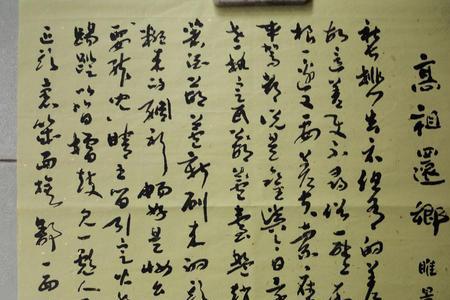 高祖還鄉 睢景
社排告示但有的差
故這差使不尋俗一壁
根一邊又要差夫索應
車駕都說是鑾輿今日還
老執定瓦臺盤趙
葫蘆新刷來的頭
糨來的綢衫暢好是妝么
瞎王留引定火
踢蹬吹笛擂鼓見一彪人
匹頭裏幾面旗舒一面